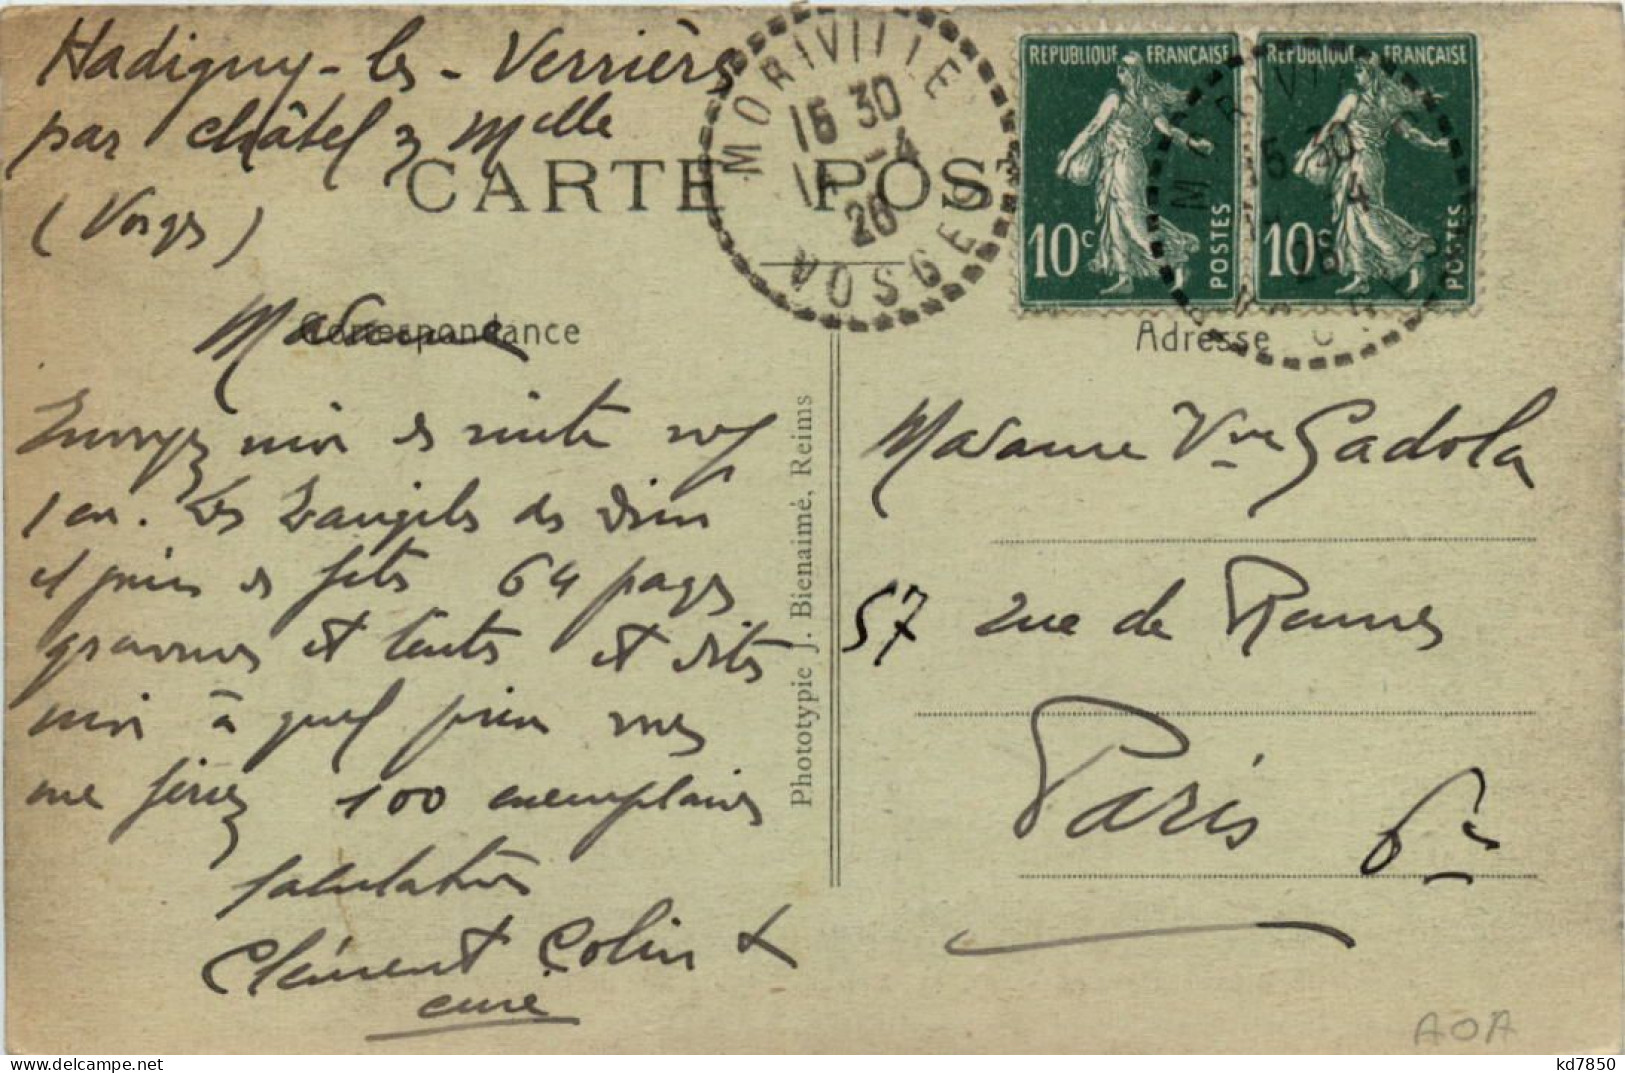 Hadigny-les-Verrières
par châtel s/ Mlle
(Vosges)
CARTE POS
MORIVILLE
15 30
14 - 4
26
VOSGES
REPUBLIQUE FRANÇAISE
10c POSTES
REPUBLIQUE FRANÇAISE
10c POSTES
MORIVILLE
15 30
4
26
Correspondance
Adresse
Madame
Envoyez moi de suite
1 ex. Les Evangiles des Dim
et prières de fêtes 64 pages
gravures et textes et dites
moi à quel prix vous
me ferez 100 exemplaires
salutations
Clément Colin
curé
Phototypie J. Bienaimé, Reims
Madame Vve Gadola
57 rue de Rennes
Paris 6e
AOA
kd7850